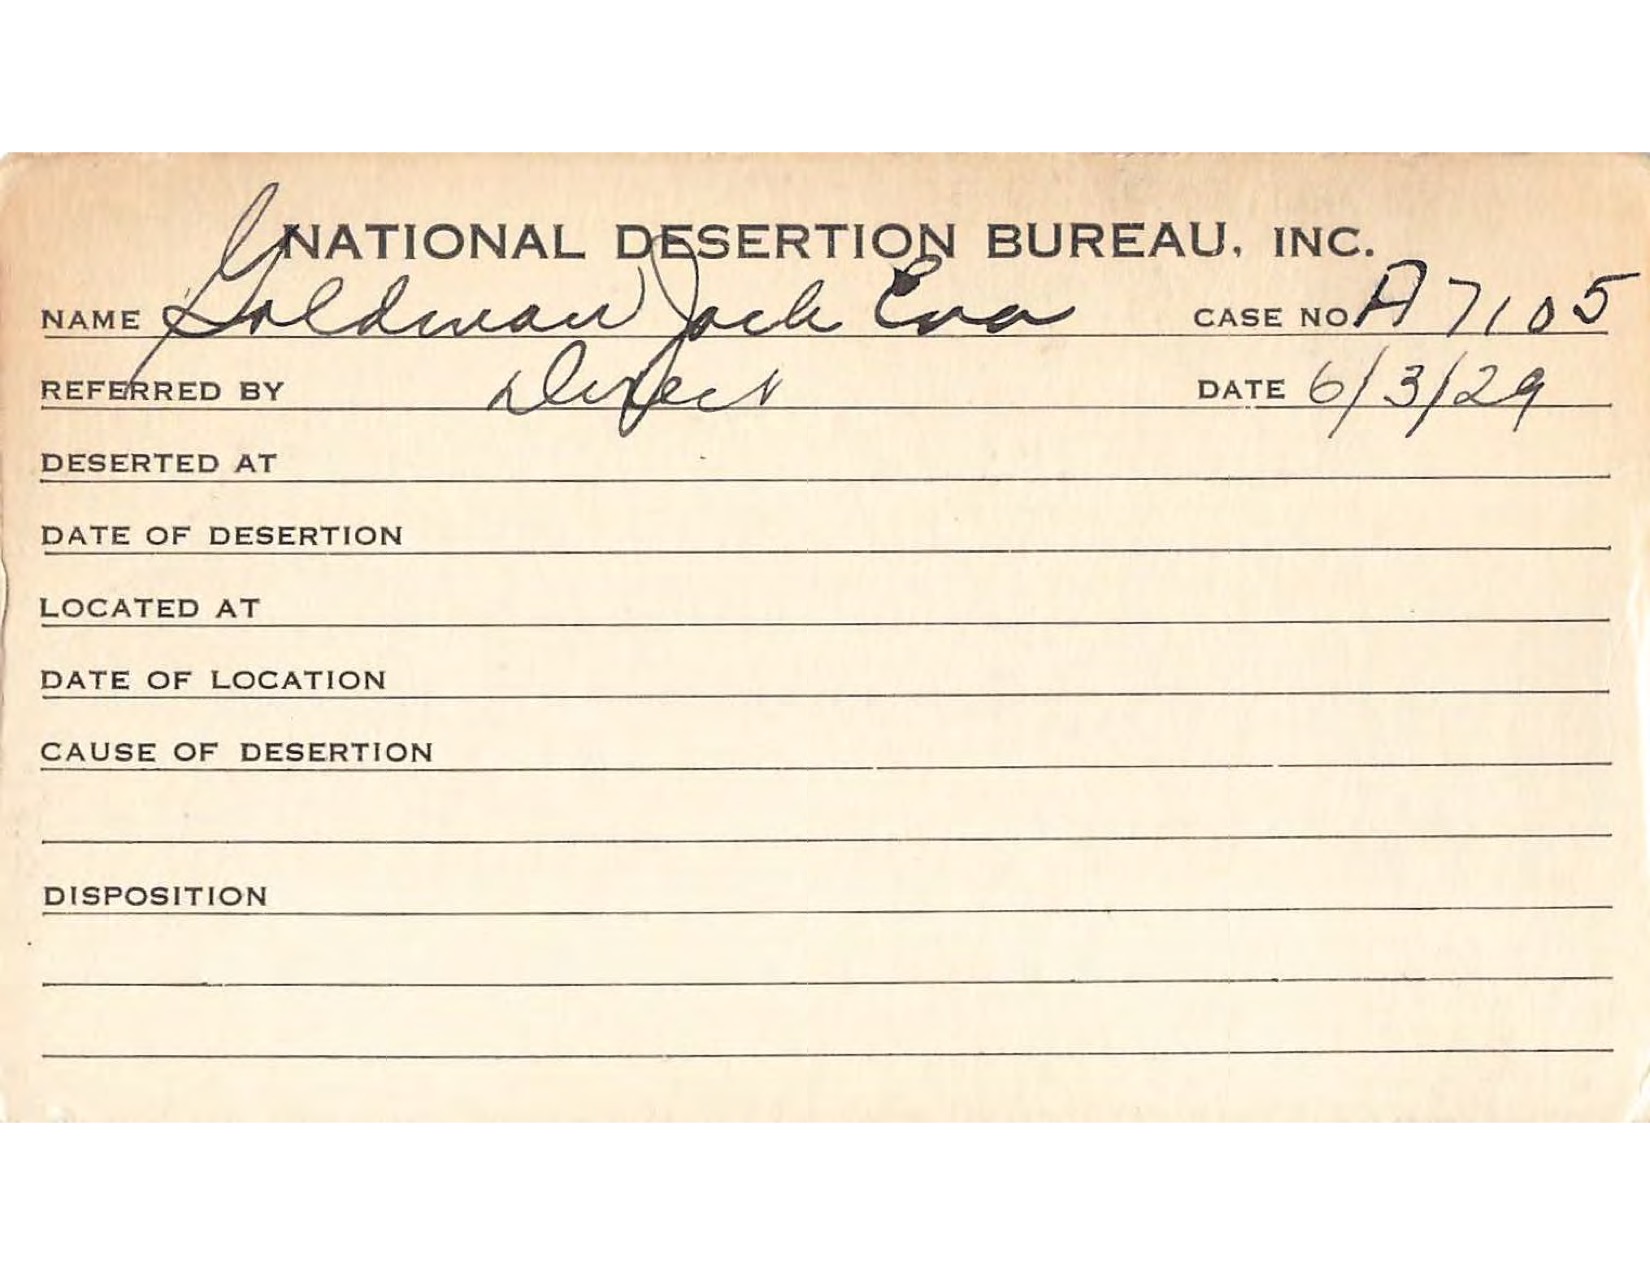 NATIONAL DESERTION BUREAU, INC.
NAME Goldman Jack Eva CASE NO. A7105
REFERRED BY Direct DATE 6/3/29
DESERTED AT
DATE OF DESERTION
LOCATED AT
DATE OF LOCATION
CAUSE OF DESERTION
DISPOSITION